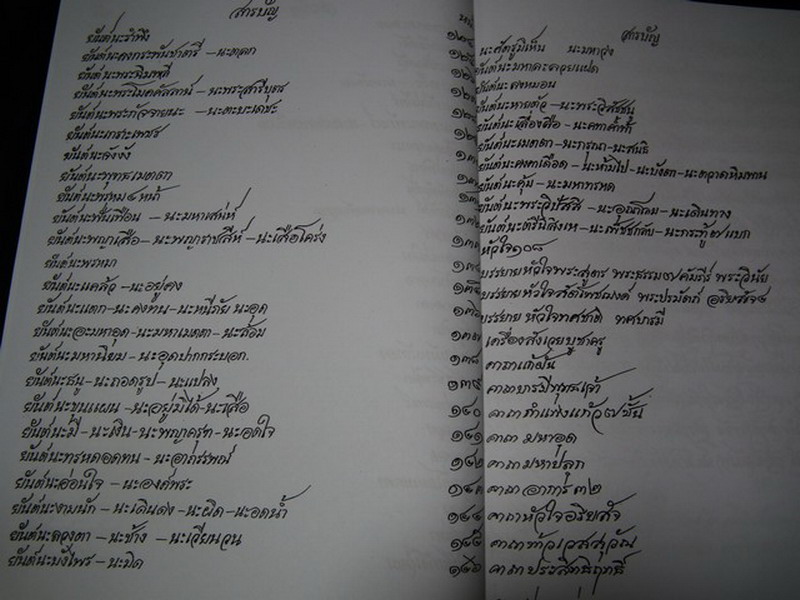 สารบัญ
ยันต์นะรำพึง
ยันต์นะคงกระพันชาตรี - นะตลก
ยันต์นะพระฉิมพลี
ยันต์นะพระโมคคัลลาน์ - นะพระสารีบุตร
ยันต์นะพระภัจจายนะ - นะตะบะเดชะ
ยันต์นะเกราะเพชร
ยันต์นะจังงัง
ยันต์นะพุทธเมตตา
ยันต์นะพรหม ๔ หน้า
ยันต์นะฟั่นเฟือน - นะมหาเสน่ห์
ยันต์นะพญาเสือ - นะพญาราชสีห์ - นะเสือโคร่ง
ยันต์นะพรหมา
ยันต์นะแคล้ว - นะอยู่คง
ยันต์นะแตก - นะคงทน - นะหนีภัย นะอุด
ยันต์นะอะมหาอุด - นะมหาเมตตา - นะล้อม
ยันต์นะมหานิยม - นะอุดปากกระบอก.
ยันต์นะธนู - นะถอดรูป - นะแปลง
ยันต์นะขุนแผน - นะอยู่มิได้ - นะเสือ
ยันต์นะมี - นะเงิน - นะพญาครุฑ - นะอดใจ
ยันต์นะทรหดอดทน - นะอาถรรพณ์
ยันต์นะอ่อนใจ - นะองค์พระ
ยันต์นะงามนัก - นะเดินดง - นะผิด - นะอดน้ำ
ยันต์นะดวงตา - นะช้าง - นะเวียนวน
ยันต์นะบังไพร - นะมิด
สารบัญ
นะศัตรูมิเห็น นะมหาวัง
ยันต์นะคงหมอน
ยันต์นะหายตัว - นะพระวิสัชชนู
ยันต์นะเลื่องลือ - นะคทาค้ำฟ้า
ยันต์นะเมตตา - นะกรุณา - นะสนธิ
ยันต์นะคงคาเดือด - นะห้ามไป - นะบังตา - นะตวาดหิมพาน
ยันต์นะคุ้ม - นะมหาทรหด
ยันต์นะพระวิปัสสี - นะอุณาโลม - นะเดินทาง
ยันต์นะตรีนิสิงเห - นะเพ็ชชกลับ - นะกระทู้ ๗ แบก
หัวใจ ๑๐๘
บรรยายหัวใจพระสูตร พระธรรม ๗ คัมภีร์ พระวินัย
บรรยายหัวใจสัตโพชฌงค์ พระปรมัตถ์ อริยสัจ ๔
บรรยายหัวใจทศชาติ ทศบารมี
๑๓๗ เครื่องสังเวยบูชาครู
๑๓๘ คาถาแก้ฝัน
๑๓๙ คาถาบารมีพุทธเจ้า
๑๔๐ คาถากำแพงแก้ว ๗ ชั้น
๑๔๑ คาถามหาอุด
๑๔๒ คาถามหาปลุก
๑๔๓ คาถาอาการ ๓๒
๑๔๔ คาถาหัวใจอริยสัจ
๑๔๕ คาถาท้าวเวสสุวัณ
๑๔๖ คาถาประสิทธิฤทธิ์